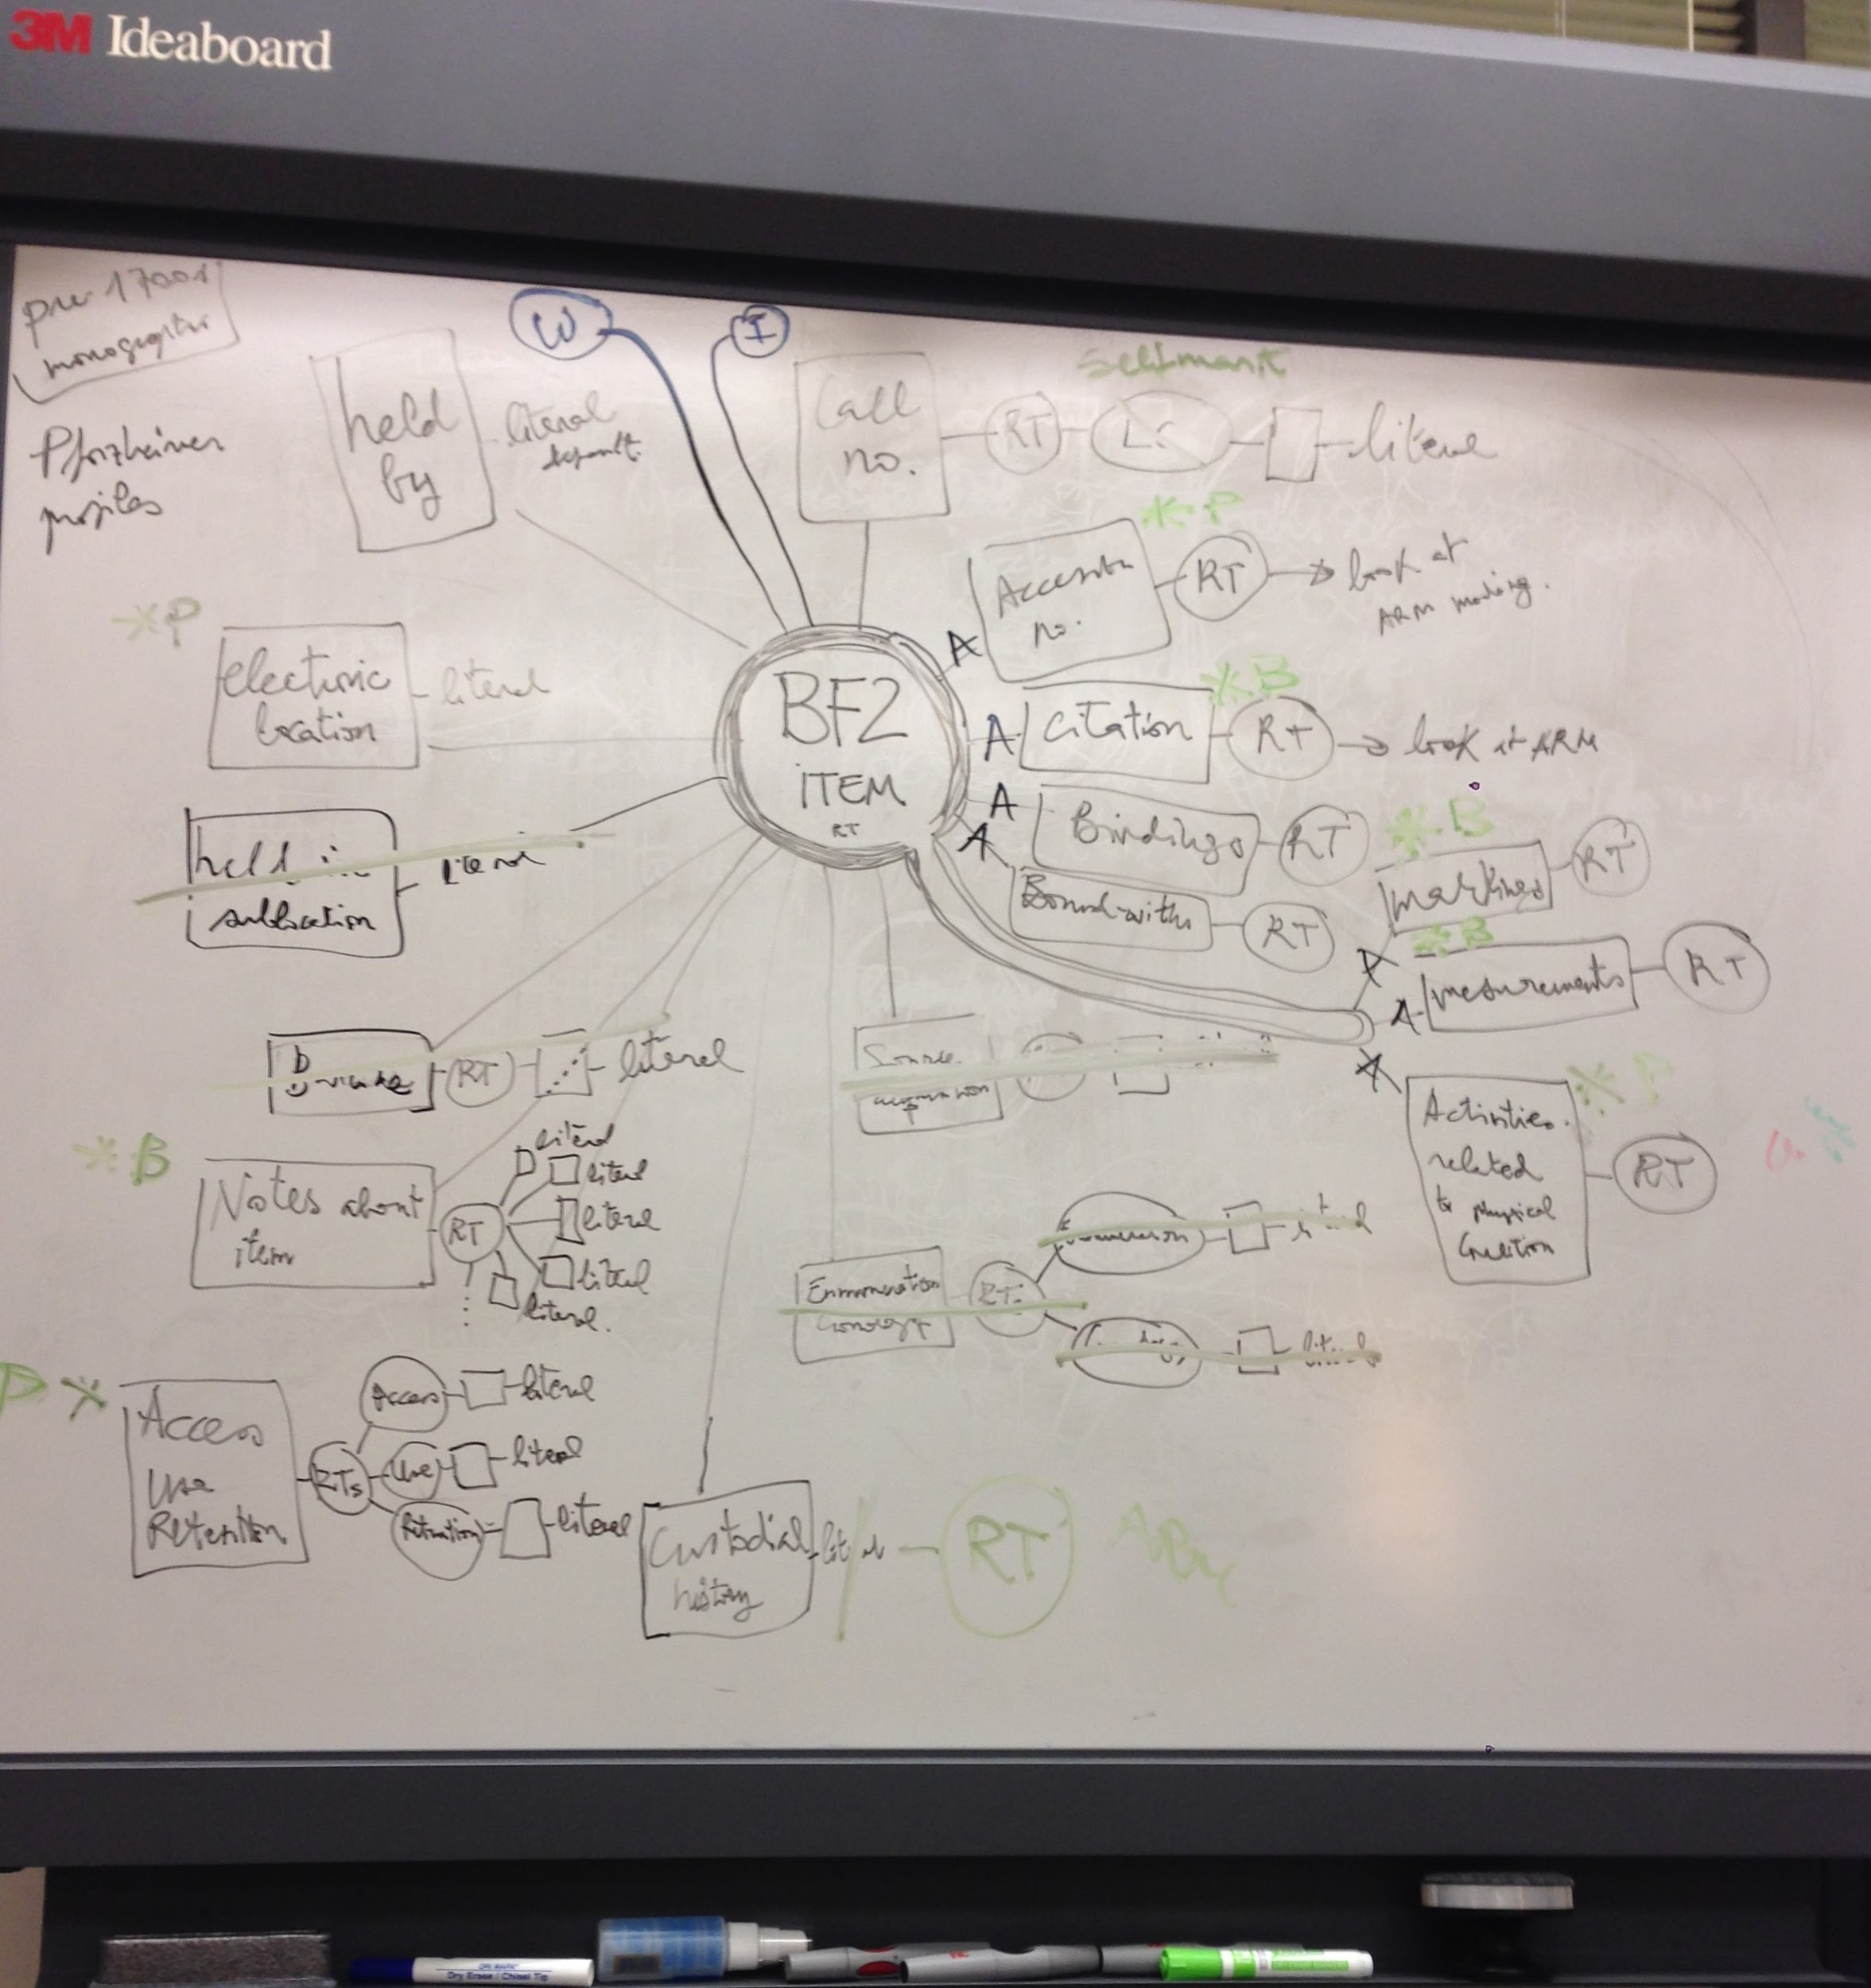 3M Ideaboard
pre-1700s
monographs
Pforzheimer
profiles
W
I
held
by
literal
default.
Call
no.
RT
LC
literal
*P
Accession
no.
RT
look at
ARM modeling.
A
*P
electronic
location
literal
BF2
ITEM
RT
A
citation
*B
RT
look at ARM
held in
sublocation
literal
A
Bindings
RT
A
Bound-withs
RT
*B
markings
RT
*B
A
mesurements
RT
A
A
RT
literal
Source
*P
Activities
related
to physical
Condition
RT
*B
Notes about
item
RT
literal
literal
literal
literal
literal.
Enumeration
Chronology
RT
literal
literal
P *
Access
Use
Retention
RTs
Access
literal
Use
literal
Retention
literal
Custodial
history
literal
RT
DRY ERASE
Dry Erase / Chisel Tip